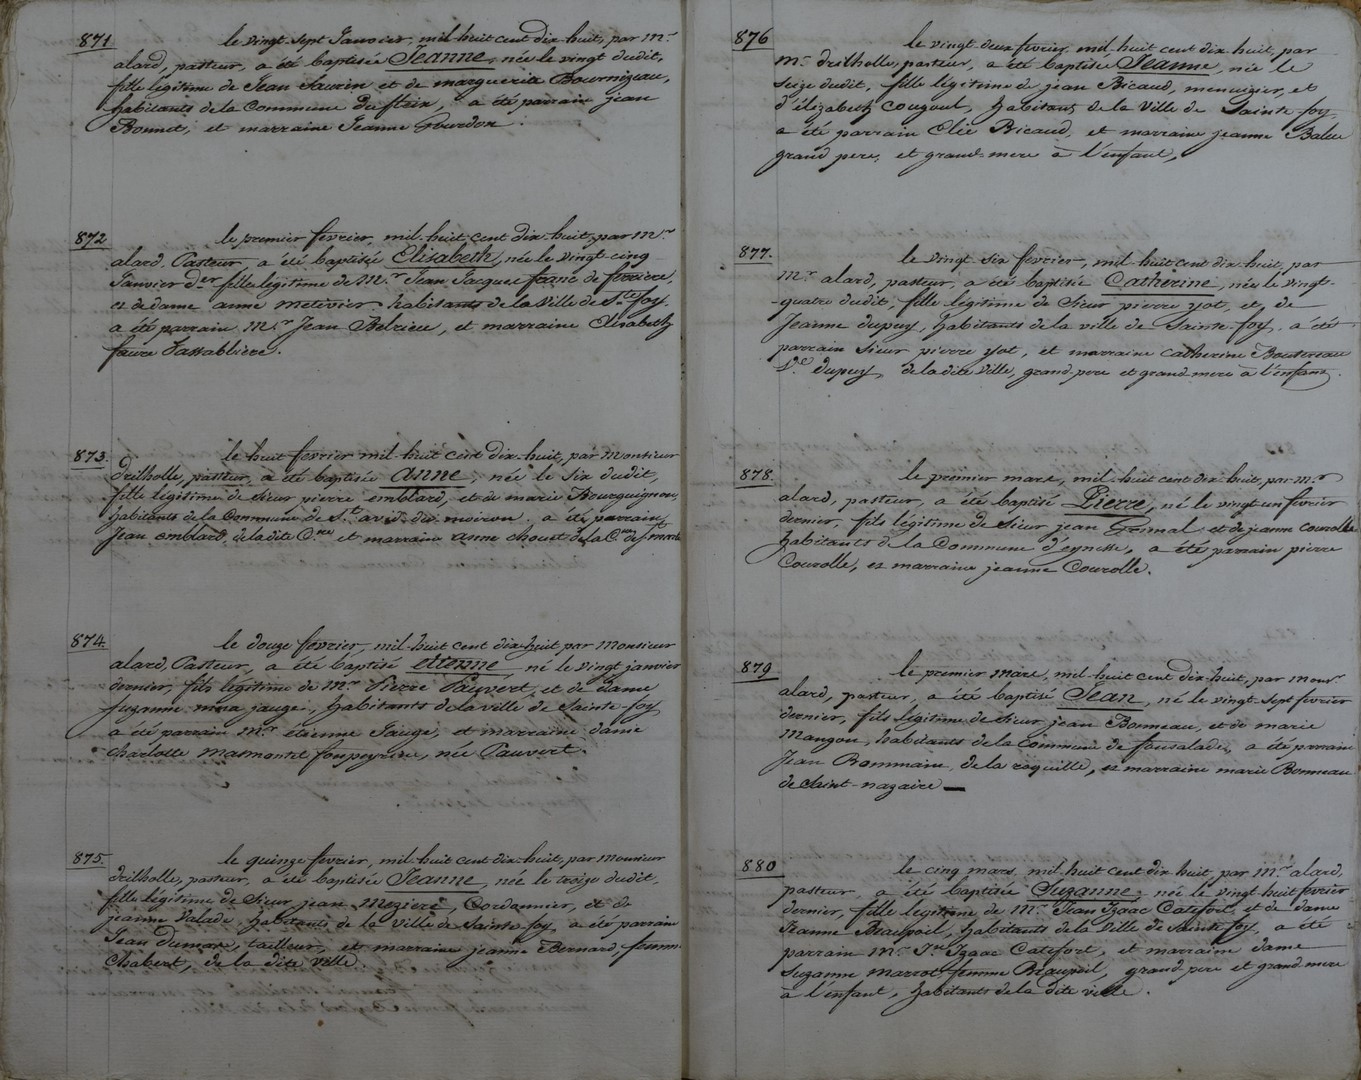 871
le vingt sept Janvier, mil-huit cent dix-huit, par Mr
alard, pasteur, a été baptisée Jeanne, née le vingt dudit,
fille légitime de Jean Saurin et de marguerite Bournizeau,
habitants de la Commune du fleix, a été parrain jean
Bonnet, et marraine Jeanne Gourdon.
872
le premier fevrier, mil-huit-cent dix-huit, par Mr
alard, Pasteur, a été baptisée Elisabeth, née le vingt-cinq
Janvier der fille légitime de M.r Jean Jacques franc de ferrière,
et de dame anne metivier habitants de la Ville de Ste foy
a été parrain M.r Jean Belrieu, et marraine Elisabeth
faure
873.
le huit fevrier mil-huit cent dix-huit, par Monsieur
Drilholle, pasteur, a été baptisée anne, née le six dudit,
fille légitime de Sieur pierre emblard, et de marie Bourguignon,
habitants de la Commune de St. avit du moiron. a été parrain
Jean emblard, de la dite C.ne et marraine anne de la C.ne de
874.
le douze fevrier, mil-huit cent dix-huit par Monsieur
alard, Pasteur, a été baptisé etienne né le vingt janvier
dernier, fils légitime de Mr. Pierre Pauvert, et de dame
suzanne nina jauge, habitants de la ville de Sainte-foy
a été parrain M.r étienne Jauge, et marraine dame
charlotte Masmontet fonpeyrine, née Pauvert.
875.
le quinze fevrier, mil-huit cent dix-huit, par Monsieur
drilholle, pasteur, a été baptisée Jeanne, née le treize dudit,
fille légitime de Sieur jean Meziere, Cordonnier, et de
jeanne Valade, habitants de la Ville de Sainte foy a été parrain
Jean Dumas, tailleur, et marraine jeanne Bernard, femme
Chabert, de la dite ville.
876
le vingt-deux fevrier mil-huit cent dix huit, par
Mr. drilholle, pasteur, a été baptisée Jeanne, née le
seize dudit, fille légitime de jean Bicaud, menuizier, et
d'élizabeth cougoul, habitans de la Ville de Sainte-foy
a été parrain Elie Bicaud, et marraine jeanne
grand pere, et grand-mere à l'enfant,
877.
le vingt six fevrier, mil-huit cent dix-huit, par
Mr. alard, pasteur, a été baptisée Catherine, née le vingt-
quatre dudit, fille légitime de Sieur pierre yot, et, de
Jeanne dupuy, habitants de la ville de Sainte-foy, a été
parrain Sieur pierre yot, et marraine catherine Boutereau
V.e dupuy, de la dite Ville, grand pere et grand mere à l'enfant.
878.
le premier mars, mil-huit cent dix-huit, par Mr
alard, pasteur, a été baptisé Pierre, né le vingt un fevrier
dernier, fils légitime de Sieur jean Grimal et de jeanne Courolle
habitants de la Commune d'eynesse, a été parrain pierre
Courolle, et marraine jeanne Courolle.
879
le premier Mars, mil-huit cent dix-huit, par Monsr.
alard, pasteur, a été baptisé Jean, né le vingt-sept fevrier
dernier, fils légitime de Sieur jean Bonneau, et de marie
Mangon, habitants de la Commune de fonsalade, a été parrain
Jean de la roquille, et marraine marie Bonneau
de Saint-nazaire
880
le cinq mars, mil huit cent dix huit, par Mr. alard,
pasteur, a été baptisée Suzanne, née le vingt huit fevrier
dernier, fille legitime de Mr. Jean Izaac Catefort, et de dame
Jeanne Beaupoil, habitants de la Ville de Sainte foy, a été
parrain Mr. Jn. Izaac Catefort, et marraine dame
Suzanne Marrot femme Beaupoil, grand pere et grand mere
à l'enfant, habitants de la dite ville.